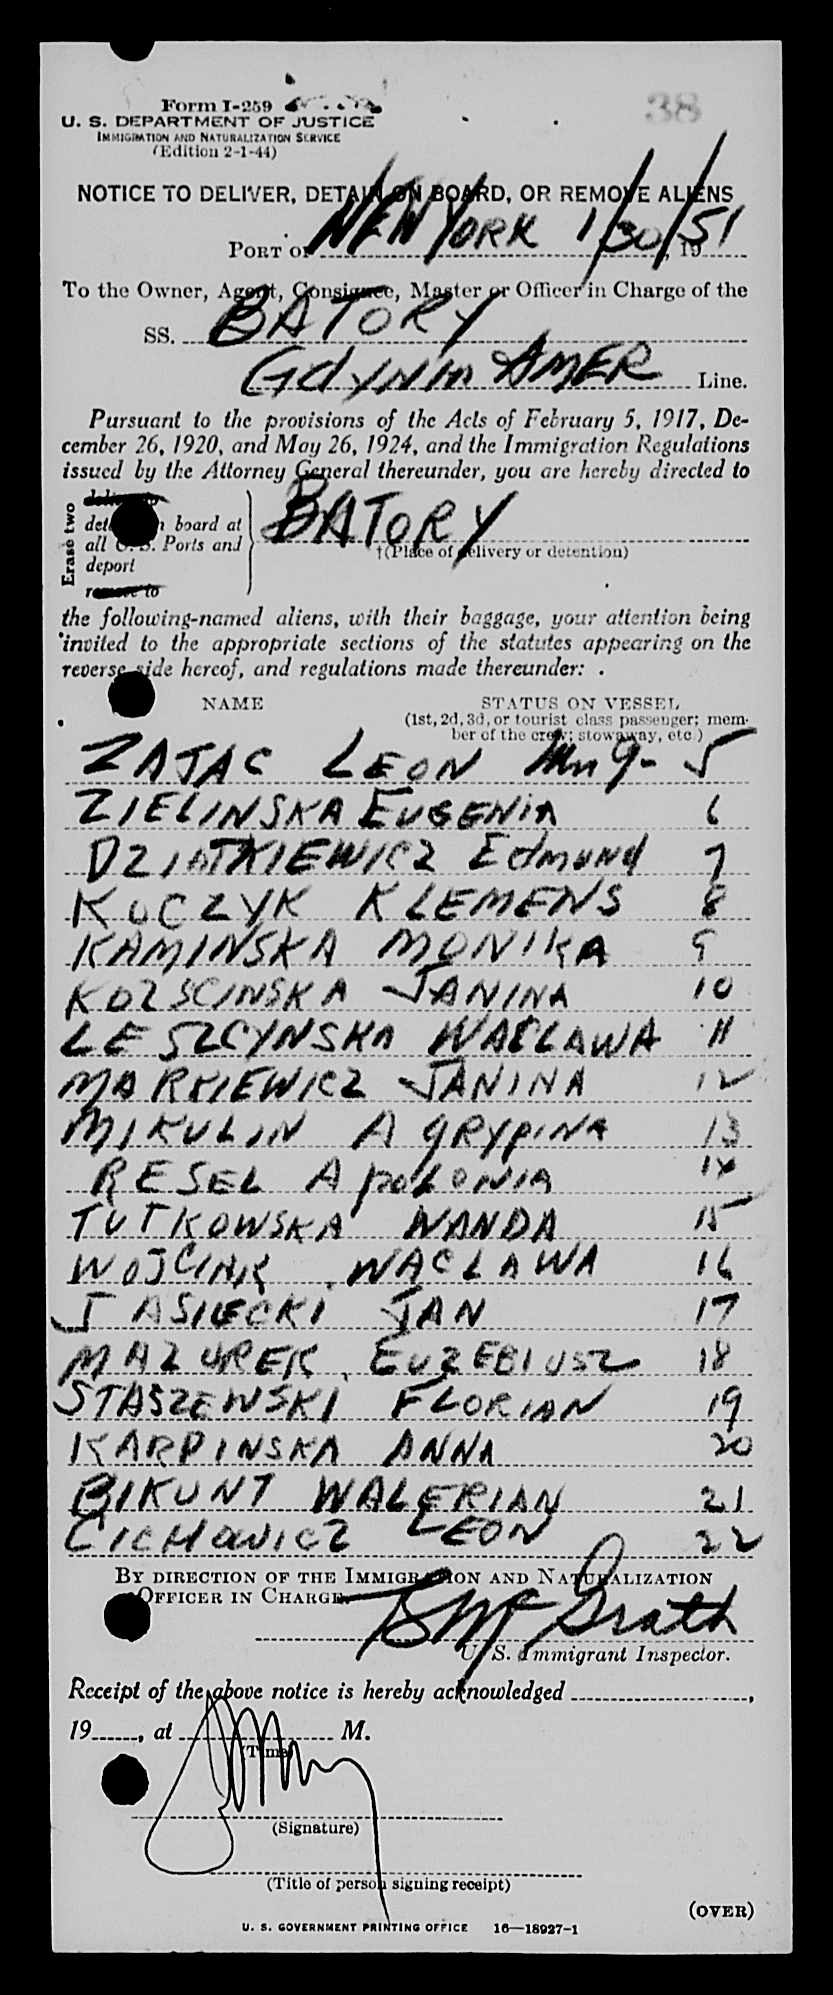 38
Form I-259
U. S. DEPARTMENT OF JUSTICE
IMMIGRATION AND NATURALIZATION SERVICE
(Edition 2-1-44)
NOTICE TO DELIVER, DETAIN ON BOARD, OR REMOVE ALIENS
PORT OF NEW YORK 1/30/, 1951
To the Owner, Agent, Consignee, Master or Officer in Charge of the
SS. BATORY
GDYNIA AMER Line.
Pursuant to the provisions of the Acts of February 5, 1917, De-
cember 26, 1920, and May 26, 1924, and the Immigration Regulations
issued by the Attorney General thereunder, you are hereby directed to
Erase two
deliver to
detain on board at
all U.S. Ports and
deport
remove to
BATORY
†(Place of delivery or detention)
the following-named aliens, with their baggage, your attention being
invited to the appropriate sections of the statutes appearing on the
reverse side hereof, and regulations made thereunder:
NAME STATUS ON VESSEL
(1st, 2d, 3d, or tourist class passenger; mem-
ber of the crew; stowaway, etc.)
ZAJAC LEON 5
ZIELINSKA EUGENIA 6
DZIATKIEWICZ Edmund 7
KUCZYK KLEMENS 8
KAMINSKA MONIKA 9
KOZSCINSKA JANINA 10
LESZCYNSKA WACLAWA 11
MARKIEWICZ JANINA 12
MIKULIN AGRYPINA 13
RESEL APOLONIA 14
TUTKOWSKA WANDA 15
WOJCIAK WACLAWA 16
JASIECKI JAN 17
MAZUREK EUZEBIUSZ 18
STASZEWSKI FLORIAN 19
KARPINSKA ANNA 20
BIKUNT WALERIAN 21
CICHOWICZ LEON 22
BY DIRECTION OF THE IMMIGRATION AND NATURALIZATION
OFFICER IN CHARGE
McGrath
U. S. Immigrant Inspector.
Receipt of the above notice is hereby acknowledged ,
19 , at M.
(Time)
(Signature)
(Title of person signing receipt)
(OVER)
U. S. GOVERNMENT PRINTING OFFICE 16—18927-1